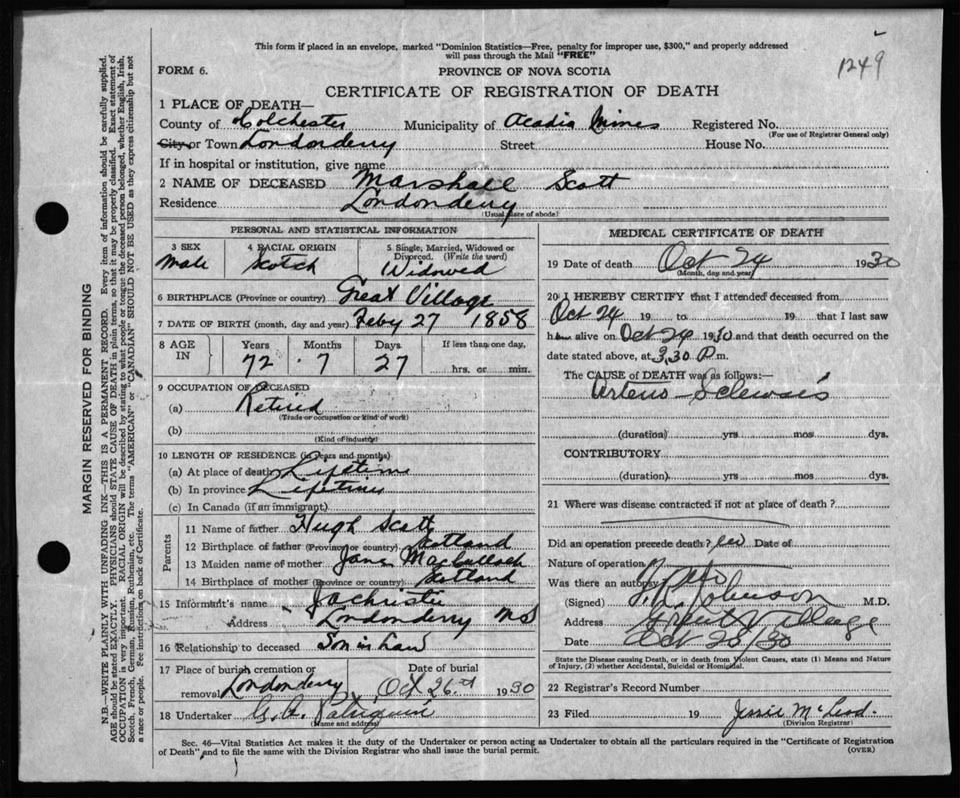 This form if placed in an envelope, marked "Dominion Statistics—Free, penalty for improper use, $300," and properly addressed
will pass through the Mail "FREE"
1249
FORM 6.
PROVINCE OF NOVA SCOTIA
CERTIFICATE OF REGISTRATION OF DEATH
1 PLACE OF DEATH—
County of Colchester Municipality of Acadia Mines Registered No.
(For use of Registrar General only)
City or Town Londonderry Street House No.
If in hospital or institution, give name
2 NAME OF DECEASED Marshall Scott
Residence Londonderry
(Usual place of abode)
PERSONAL AND STATISTICAL INFORMATION
3 SEX 4 RACIAL ORIGIN 5 Single, Married, Widowed or
Divorced. (Write the word)
Male Scotch Widowed
6 BIRTHPLACE (Province or country) Great Village
7 DATE OF BIRTH (month, day and year) Feby 27 1858
8 AGE IN Years Months Days If less than one day,
72 7 27 hrs. or min.
9 OCCUPATION OF DECEASED
(a) Retired
(Trade or occupation or kind of work)
(b)
(Kind of industry)
10 LENGTH OF RESIDENCE (in years and months)
(a) At place of death Lifetime
(b) In province Lifetime
(c) In Canada (if an immigrant)
Parents
11 Name of father Hugh Scott
12 Birthplace of father (Province or country) Scotland
13 Maiden name of mother Jane MacCulloch
14 Birthplace of mother (Province or country) Scotland
15 Informant's name
Address Londonderry NS
16 Relationship to deceased Son in Law
17 Place of burial, cremation or Date of burial
removal Londonderry Oct 26th 1930
18 Undertaker
(Name and address)
MEDICAL CERTIFICATE OF DEATH
19 Date of death Oct 24 1930
(Month, day and year)
20 I HEREBY CERTIFY that I attended deceased from
Oct 24 19 to 19 that I last saw
h alive on Oct 24 1930 and that death occurred on the
date stated above, at 3,30 P.m.
The CAUSE of DEATH was as follows:—
Arterio-Sclerosis
(duration) yrs mos dys.
CONTRIBUTORY
(duration) yrs mos dys.
21 Where was disease contracted if not at place of death?
Did an operation precede death? no Date of
Nature of operation
Was there an autopsy no
(Signed) Johnson M.D.
Address Great Village
Date Oct 25/30
State the Disease causing Death, or in death from Violent Causes, state (1) Means and Nature
of Injury, (2) whether Accidental, Suicidal or Homicidal.
22 Registrar's Record Number
23 Filed 19 Jessie McLeod.
(Division Registrar)
Sec. 46—Vital Statistics Act makes it the duty of the Undertaker or person acting as Undertaker to obtain all the particulars required in the "Certificate of Registration
of Death" and to file the same with the Division Registrar who shall issue the burial permit.
(OVER)
MARGIN RESERVED FOR BINDING
N.B.—WRITE PLAINLY WITH UNFADING INK—THIS IS A PERMANENT RECORD. Every item of information should be carefully supplied.
AGE should be stated EXACTLY. PHYSICIANS should STATE CAUSE OF DEATH in plain terms, so that it may be properly classified. Exact statement of
OCCUPATION is very important. RACIAL ORIGIN will be described by stating to what people or tongue the deceased person belonged, whether English, Irish,
Scotch, French, German, Russian, Ruthenian, etc. The terms "AMERICAN" or "CANADIAN" SHOULD NOT BE USED as they express citizenship but not
a race or people. See instructions on back of Certificate.